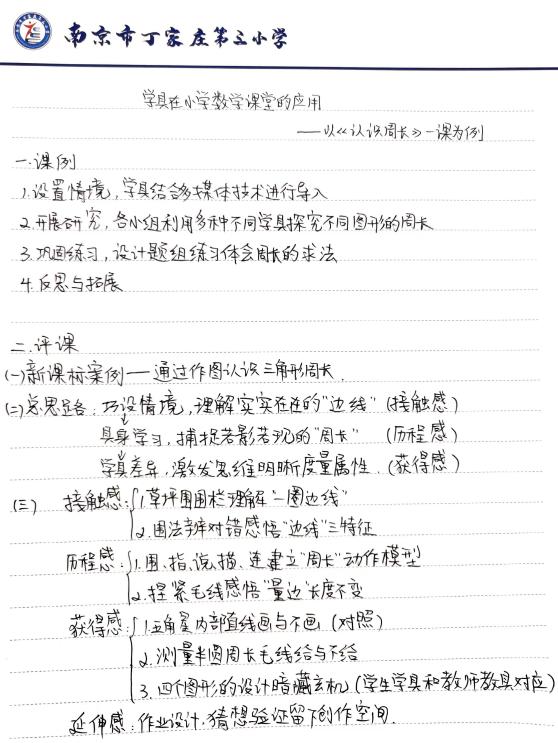 南京市丁家庄第三小学
学具在小学数学课堂的应用
——以《认识周长》一课为例
一.课例
1.设置情境,学具结合多媒体技术进行导入
2.开展研究,各小组利用多种不同学具探究不同图形的周长
3.巩固练习,设计题组练习体会周长的求法
4.反思与拓展
二.评课
(一)新课标案例——通过作图认识三角形周长.
(二)总思路:巧设情境,理解实实在在的“边线”(接触感)
具身学习,捕捉若影若现的“周长”(历程感)
学具差异,激发思维明晰度量属性.(获得感)
(三) 接触感:1.草坪围围栏理解“一圈边线”
2.围法辨对错感悟“边线”三特征
历程感:1.围、指、说、描、连建立“周长”动作模型
2.捏紧毛线感悟“量边”长度不变
获得感:1.五角星内部直线画与不画(对照)
2.测量半圆周长毛线给与不给
3.四个图形的设计暗藏玄机(学生学具和教师教具对应)
延伸感:作业设计.猜想验证留下创作空间.